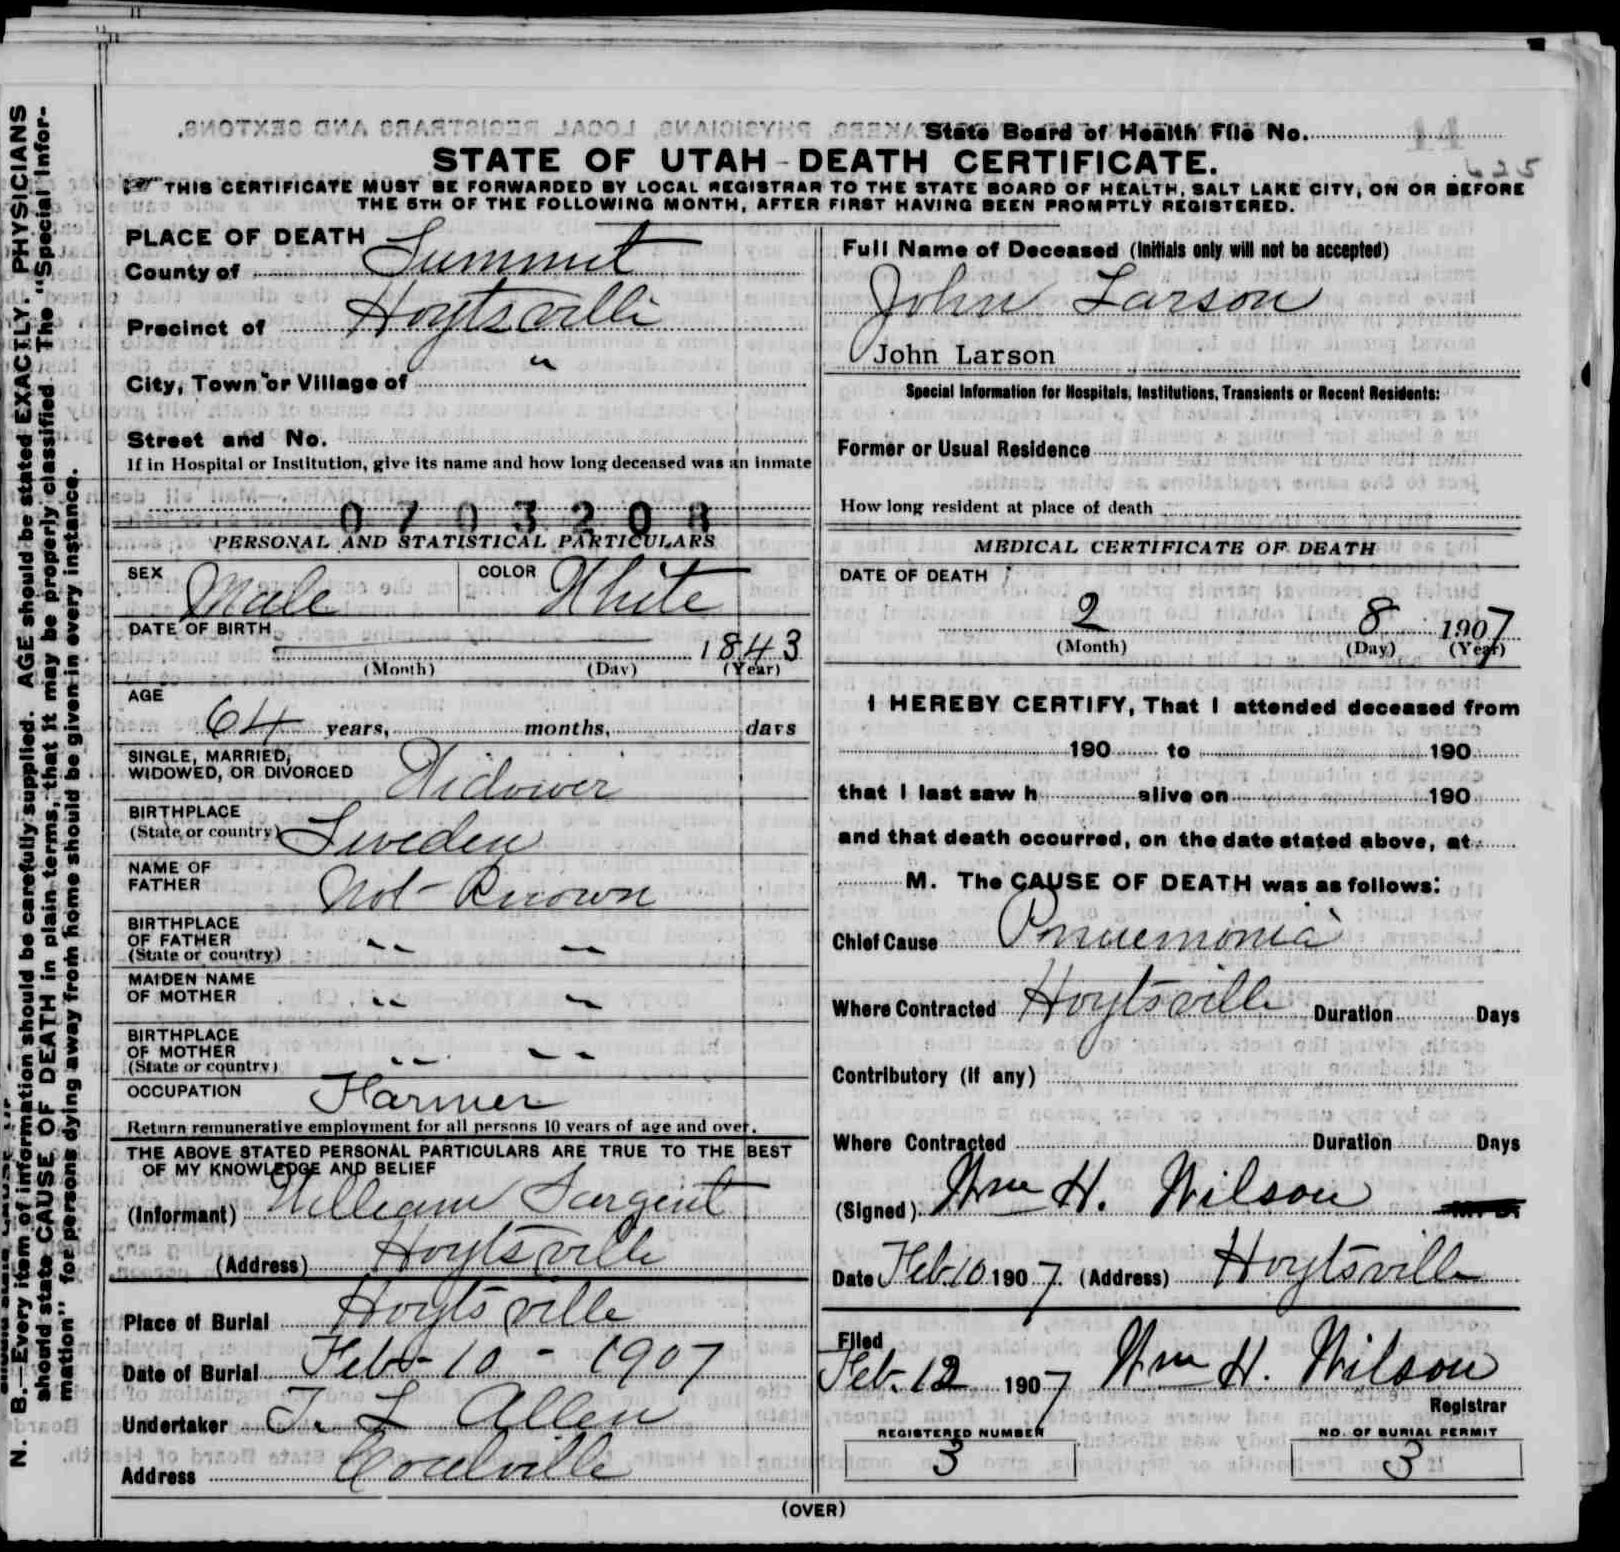 State Board of Health File No.
625
STATE OF UTAH - DEATH CERTIFICATE.
THIS CERTIFICATE MUST BE FORWARDED BY LOCAL REGISTRAR TO THE STATE BOARD OF HEALTH, SALT LAKE CITY, ON OR BEFORE
THE 5TH OF THE FOLLOWING MONTH, AFTER FIRST HAVING BEEN PROMPTLY REGISTERED.
PLACE OF DEATH
County of Summit
Precinct of Hoytsville
City, Town or Village of "
Street and No.
If in Hospital or Institution, give its name and how long deceased was an inmate
0703208
PERSONAL AND STATISTICAL PARTICULARS
SEX Male COLOR White
DATE OF BIRTH 1843
(Month) (Day) (Year)
AGE
64 years, months, days
SINGLE, MARRIED,
WIDOWED, OR DIVORCED Widower
BIRTHPLACE
(State or country) Sweden
NAME OF
FATHER Not Known
BIRTHPLACE
OF FATHER " "
(State or country)
MAIDEN NAME
OF MOTHER " "
BIRTHPLACE
OF MOTHER " "
(State or country)
OCCUPATION Farmer
Return remunerative employment for all persons 10 years of age and over.
THE ABOVE STATED PERSONAL PARTICULARS ARE TRUE TO THE BEST
OF MY KNOWLEDGE AND BELIEF
(Informant) William Sargent
(Address) Hoytsville
Place of Burial Hoytsville
Date of Burial Feb - 10 - 1907
Undertaker T. L Allen
Address Coalville
Full Name of Deceased (Initials only will not be accepted)
John Larson
John Larson
Special Information for Hospitals, Institutions, Transients or Recent Residents:
Former or Usual Residence
How long resident at place of death
MEDICAL CERTIFICATE OF DEATH
DATE OF DEATH
2 8 1907
(Month) (Day) (Year)
I HEREBY CERTIFY, That I attended deceased from
190 to 190
that I last saw h alive on 190
and that death occurred, on the date stated above, at
M. The CAUSE OF DEATH was as follows:
Chief Cause Pnuemonia
Where Contracted Hoytsville Duration Days
Contributory (if any)
Where Contracted Duration Days
(Signed) Wm H. Wilson M. D.
Date Feb 10 1907 (Address) Hoytsville
Filed
Feb. 12 1907 Wm H. Wilson
Registrar
REGISTERED NUMBER NO. OF BURIAL PERMIT
3 3
(OVER)
N. B.—Every item of information should be carefully supplied. AGE should be stated EXACTLY. PHYSICIANS
should state CAUSE OF DEATH in plain terms, that it may be properly classified The "Special Infor-
mation" for persons dying away from home should be given in every instance.